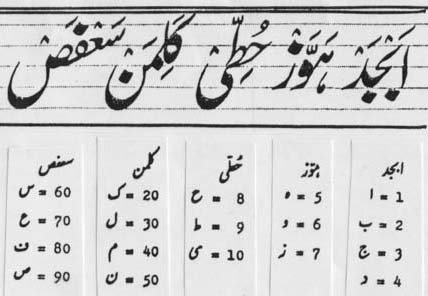 اَبْجَدْ هَوَّزْ حُطِّیْ کَلِمَنْ سَعْفَصْ
ابجد ہوّز حُطّی کلمن سعفص
ا = 1 ہ = 5 ح = 8 ک = 20 س = 60
ب = 2 و = 6 ط = 9 ل = 30 ع = 70
ج = 3 ز = 7 ی = 10 م = 40 ف = 80
د = 4 ن = 50 ص = 90